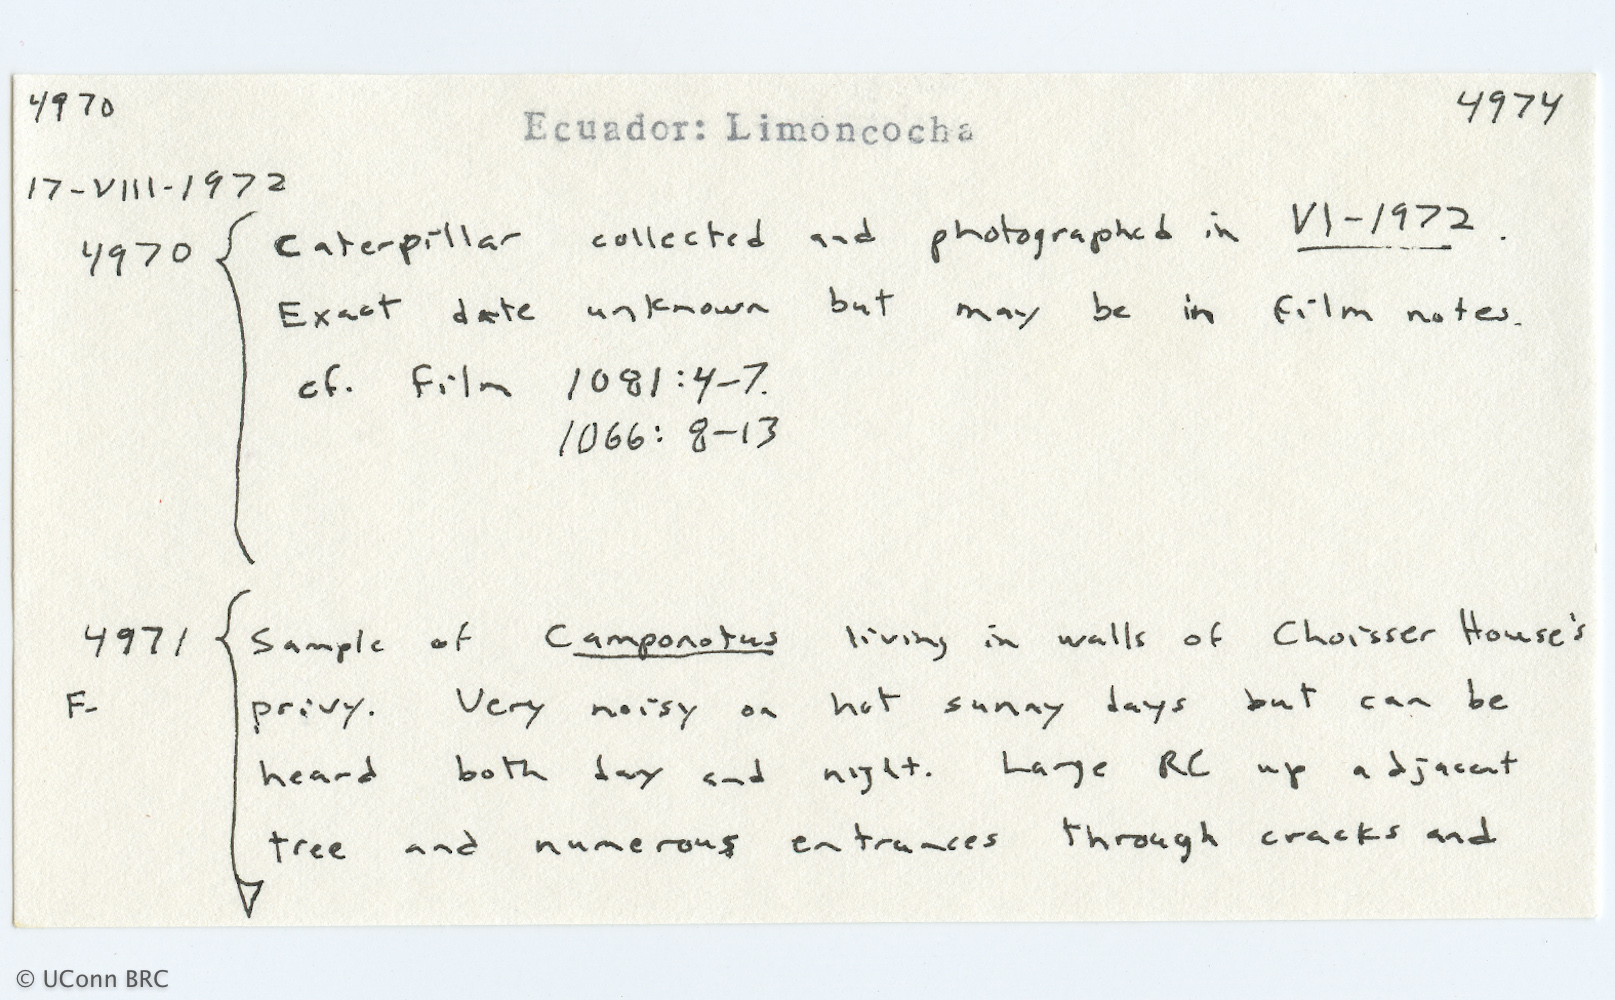 4970
4974
Ecuador: Limoncocha
17-VIII-1972
4970 { Caterpillar collected and photographed in VI-1972.
Exact date unknown but may be in film notes.
cf. Film 1081:4-7.
1066: 8-13
4971 { Sample of Camponotus living in walls of Choisser House's
F- privy. Very noisy on hot sunny days but can be
heard both day and night. Large RC up adjacent
tree and numerous entrances through cracks and
© UConn BRC